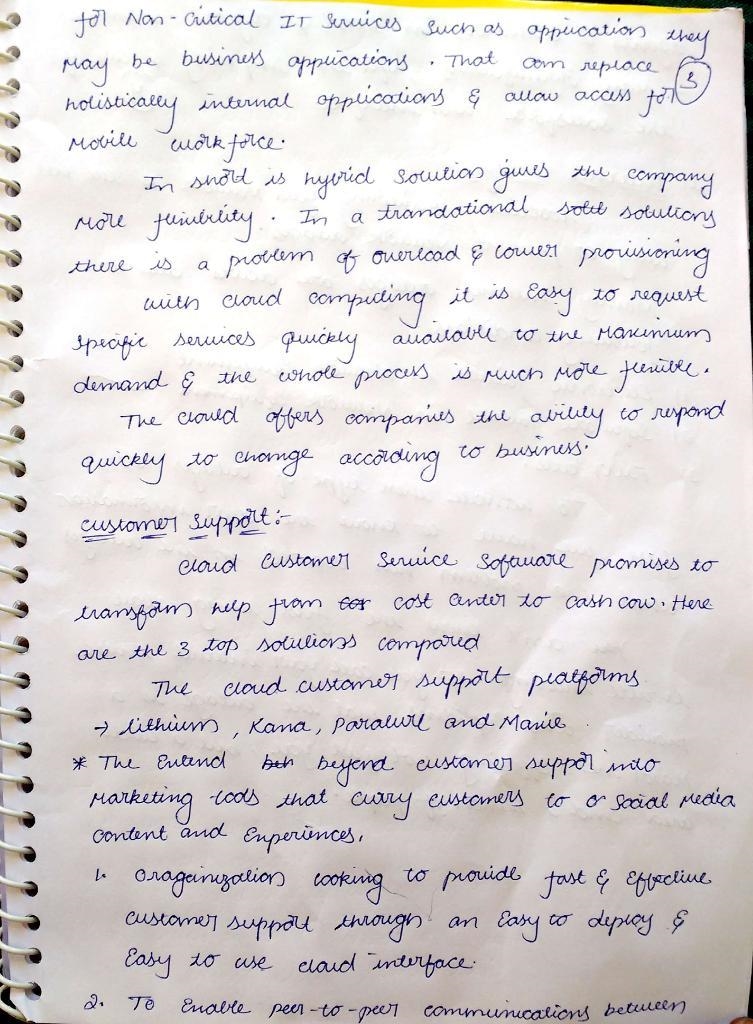 for Non-Critical IT Services such as application they
may be business applications. That can replace
holistically internal applications & allow access for
3
Mobile workforce.
In short is hybrid solution gives the company
more flexibility. In a trandational solut solutions
there is a problem of overload & lower provisioning
with cloud computing it is Easy to request
specific services quickly available to the Maximum
demand & the whole process is much more flexible.
The cloud offers companies the ability to respond
quickly to change according to business.
Customer Support:-
Cloud Customer Service Software promises to
transform help from cost center to cash cow. Here
are the 3 top solutions compared
The cloud customer support platforms
→ lithium, Kana, Parature and Maxie
* The Extend beyond customer suppor into
Marketing tools that curry customers to or Social Media
content and Experiences.
1. Oraganization looking to provide fast & Effective
customer support through an Easy to deploy &
Easy to use cloud interface.
2. To Enable peer-to-peer communications between